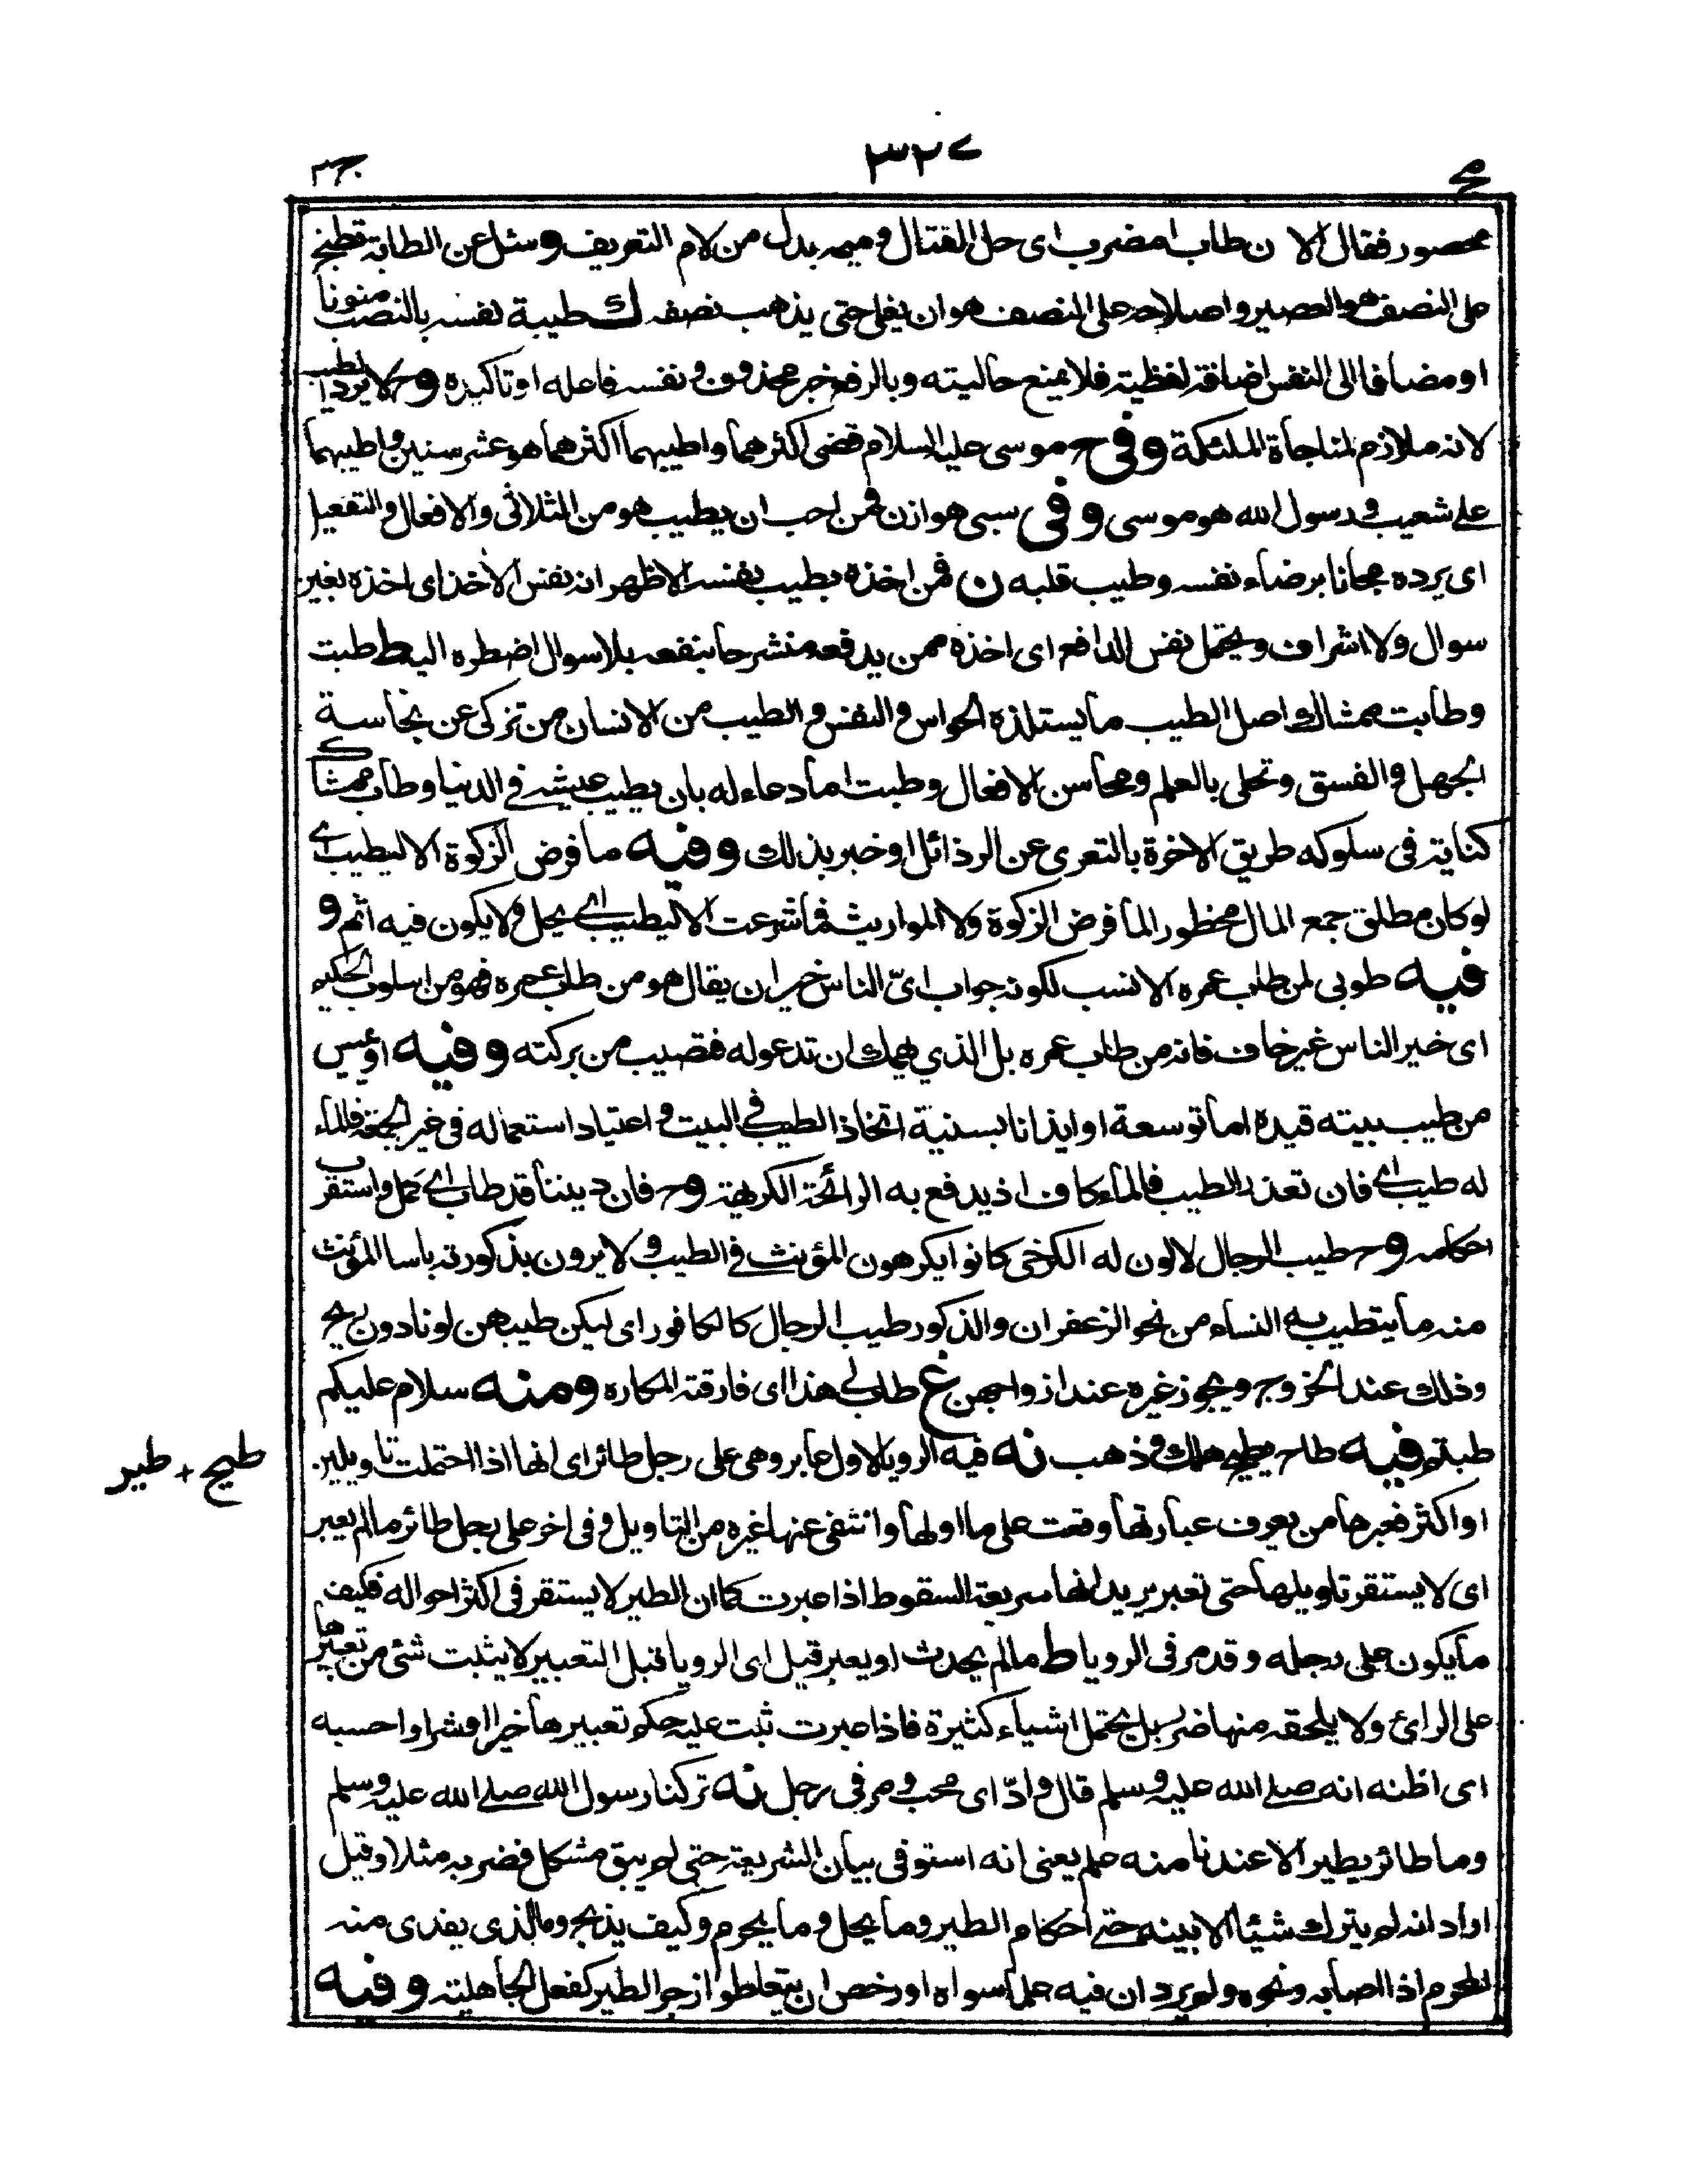 ٣٢٧
محصور فقال الان طاب امضرب اى حل القتال وميمه بدل من لام التعريف وسئل عن الطابة تطبخ
على النصف هو العصير واصلاحه على النصف هو ان يغلى حتى يذهب نصفه ك طيبة نفسه بالنصب منونا
او مضافا الى النفس اضافة لفظية فلا يمنع حاليته وبالرفع خبر محذوف ونفسه فاعله او تاكيده وح لا يرد الطيب
لانه ملازم لمناجاة الملئكة وفى ح موسى عليه السلام قضى اكثرهما واطيبهما اكثرهما هو عشر سنين واطيبهما
على شعيب ورسول الله هو موسى وفى سبى هوازن فمن احب ان يطيب هو من الثلاثى والافعال والتفعيل
اى يرده مجانا برضاء نفسه وطيب قلبه ن فمن اخذه بطيب نفسه الاظهر انه نفس الأخذ اى اخذه بغير
سوال ولا اشراف ويحتمل نفس الدافع اى اخذه ممن يدفعه منشرحا بنفعه بلا سوال اضطره اليه ط طبت
وطابت ممشاك اصل الطيب ما يستلذه الحواس والنفس والطيب من الانسان من تزكى عن نجاسة
الجهل والفسق وتحلى بالعلم ومحاسن الافعال وطبت اما دعاء له بان يطيب عيشه في الدنيا وطاب ممشاك
كناية فى سلوكه طريق الاخرة بالتعرى عن الرذائل او خبر بذلك وفيه ما فرض الزكوة الا ليطيب اى
لو كان مطلق جمع المال محظور الما فرض الزكوة ولا المواريث فما شرعت الا ليطيب اى يحل ولا يكون فيه اثم و
فيه طوبى لمن طاب عمره الانسب لكونه جواب اىّ الناس خير ان يقال هو من طاب عمره فهو من اسلوب الحكيم
اى خير الناس غير خاف فانه من طاب عمره بل الذي يهمك ان تدعو له فتصيب من بركته وفيه او يمس
من طيب بيته قيده اما توسعة او ايذانا بسنية اتخاذ الطيب في البيت واعتياد استعماله فى غير الجمعة فالماء
له طيب اى فان تعذر الطيب فالماء كاف اذ يدفع به الرائحة الكريهة وح فان ديننا قد طاب اى كمل واستقر
احكامه وح طيب الرجال لا لون له الكرخى كانوا يكرهون المؤنث في الطيب ولا يرون بذكورته باسا المؤنث
منه ما يتطيب به النساء من نحو الزعفران والذكور طيب الرجال كالكافور اى ليكن طيبهن لونا دون ريح
وذلك عند الخروج ويجوز غيره عند ازواجهن غ طاب لى هذا اى فارقته المكاره ومنه سلام عليكم
طبتم وفيه طاح يطيح هلك وذهب نه فيه الرويا لاول عابر وهى على رجل طائر اى انها اذا احتملت تاويلين
او اكثر فعبرها من يعرف عبارتها وقعت على ما اولها وانتفى عنها غيره من التاويل وفى اخر على رجل طائر ما لم يعبر
اى لا يستقر تاويلها حتى تعبر يريد انها سريعة السقوط اذا عبرت كما ان الطير لا يستقر فى اكثر احواله فكيف
ما يكون على رجله وقد مر فى الرويا ط ما لم يحدث او يعبر قيل اى الرويا قبل التعبير لا يثبت شئ من تعبيرها
على الرائ ولا يلحقه منها ضر بل يحتمل اشياء كثيرة فاذا عبرت ثبت عليه حكم تعبيرها خيرا او شرا واحسبه
اى اظنه انه صلى الله عليه وسلم قال وادّ اى محب ومر فى رجل نه تركنا رسول الله صلى الله عليه وسلم
وما طائر يطير الا عندنا منه علم يعنى انه استوفى بيان الشريعة حتى لم يبق مشكل فضربه مثلا وقيل
اراد انه لم يترك شيئا الا بينه حتى احكام الطير وما يحل وما يحرم وكيف يذبح وما الذى يفدى منه
المحرم اذا اصابه ونحوه ولم يرد ان فيه علما سواه او رخص ان يتعاطوا زجر الطير كفعل الجاهلية وفيه
طيح + طير